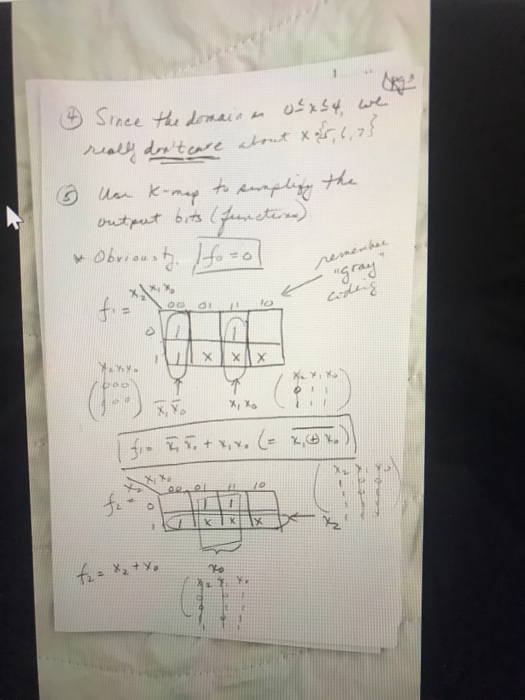 ④ Since the domain is 0≤x≤4, we
really don't care about x {5,6,7}
⑤ Use K-map to simplify the
output bits (functions)
* Obviously, f₀=0
remember
"gray"
coding
x₂ x₁x₀
00 01 11 10
f₁ =
0 1 1
1 1 x x x
x₂x₁x₀
x₂x₁x₀
x̄₁x̄₀
x₁x₀
f₁= x̄₁x̄₀ + x₁x₀ (= x₁⊕x₀)
x₂ x₁x₀
00 01 11 10
f₂ =
0 1 1
1 1 x x x
x₂
x₂ x₁ x₀
f₂ = x₂ + x₀
x₀
x₂ x₁ x₀